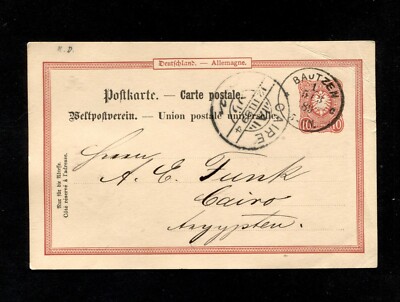 R. D.
Deutschland. — Allemagne.
Postkarte. — Carte postale.
Weltpostverein. — Union postale universelle.
BAUTZEN
CAIRE
10
Herrn
A. E. Funk
Cairo
Aegypten.
Nur für die Adresse.
Côté réservé à l'adresse.